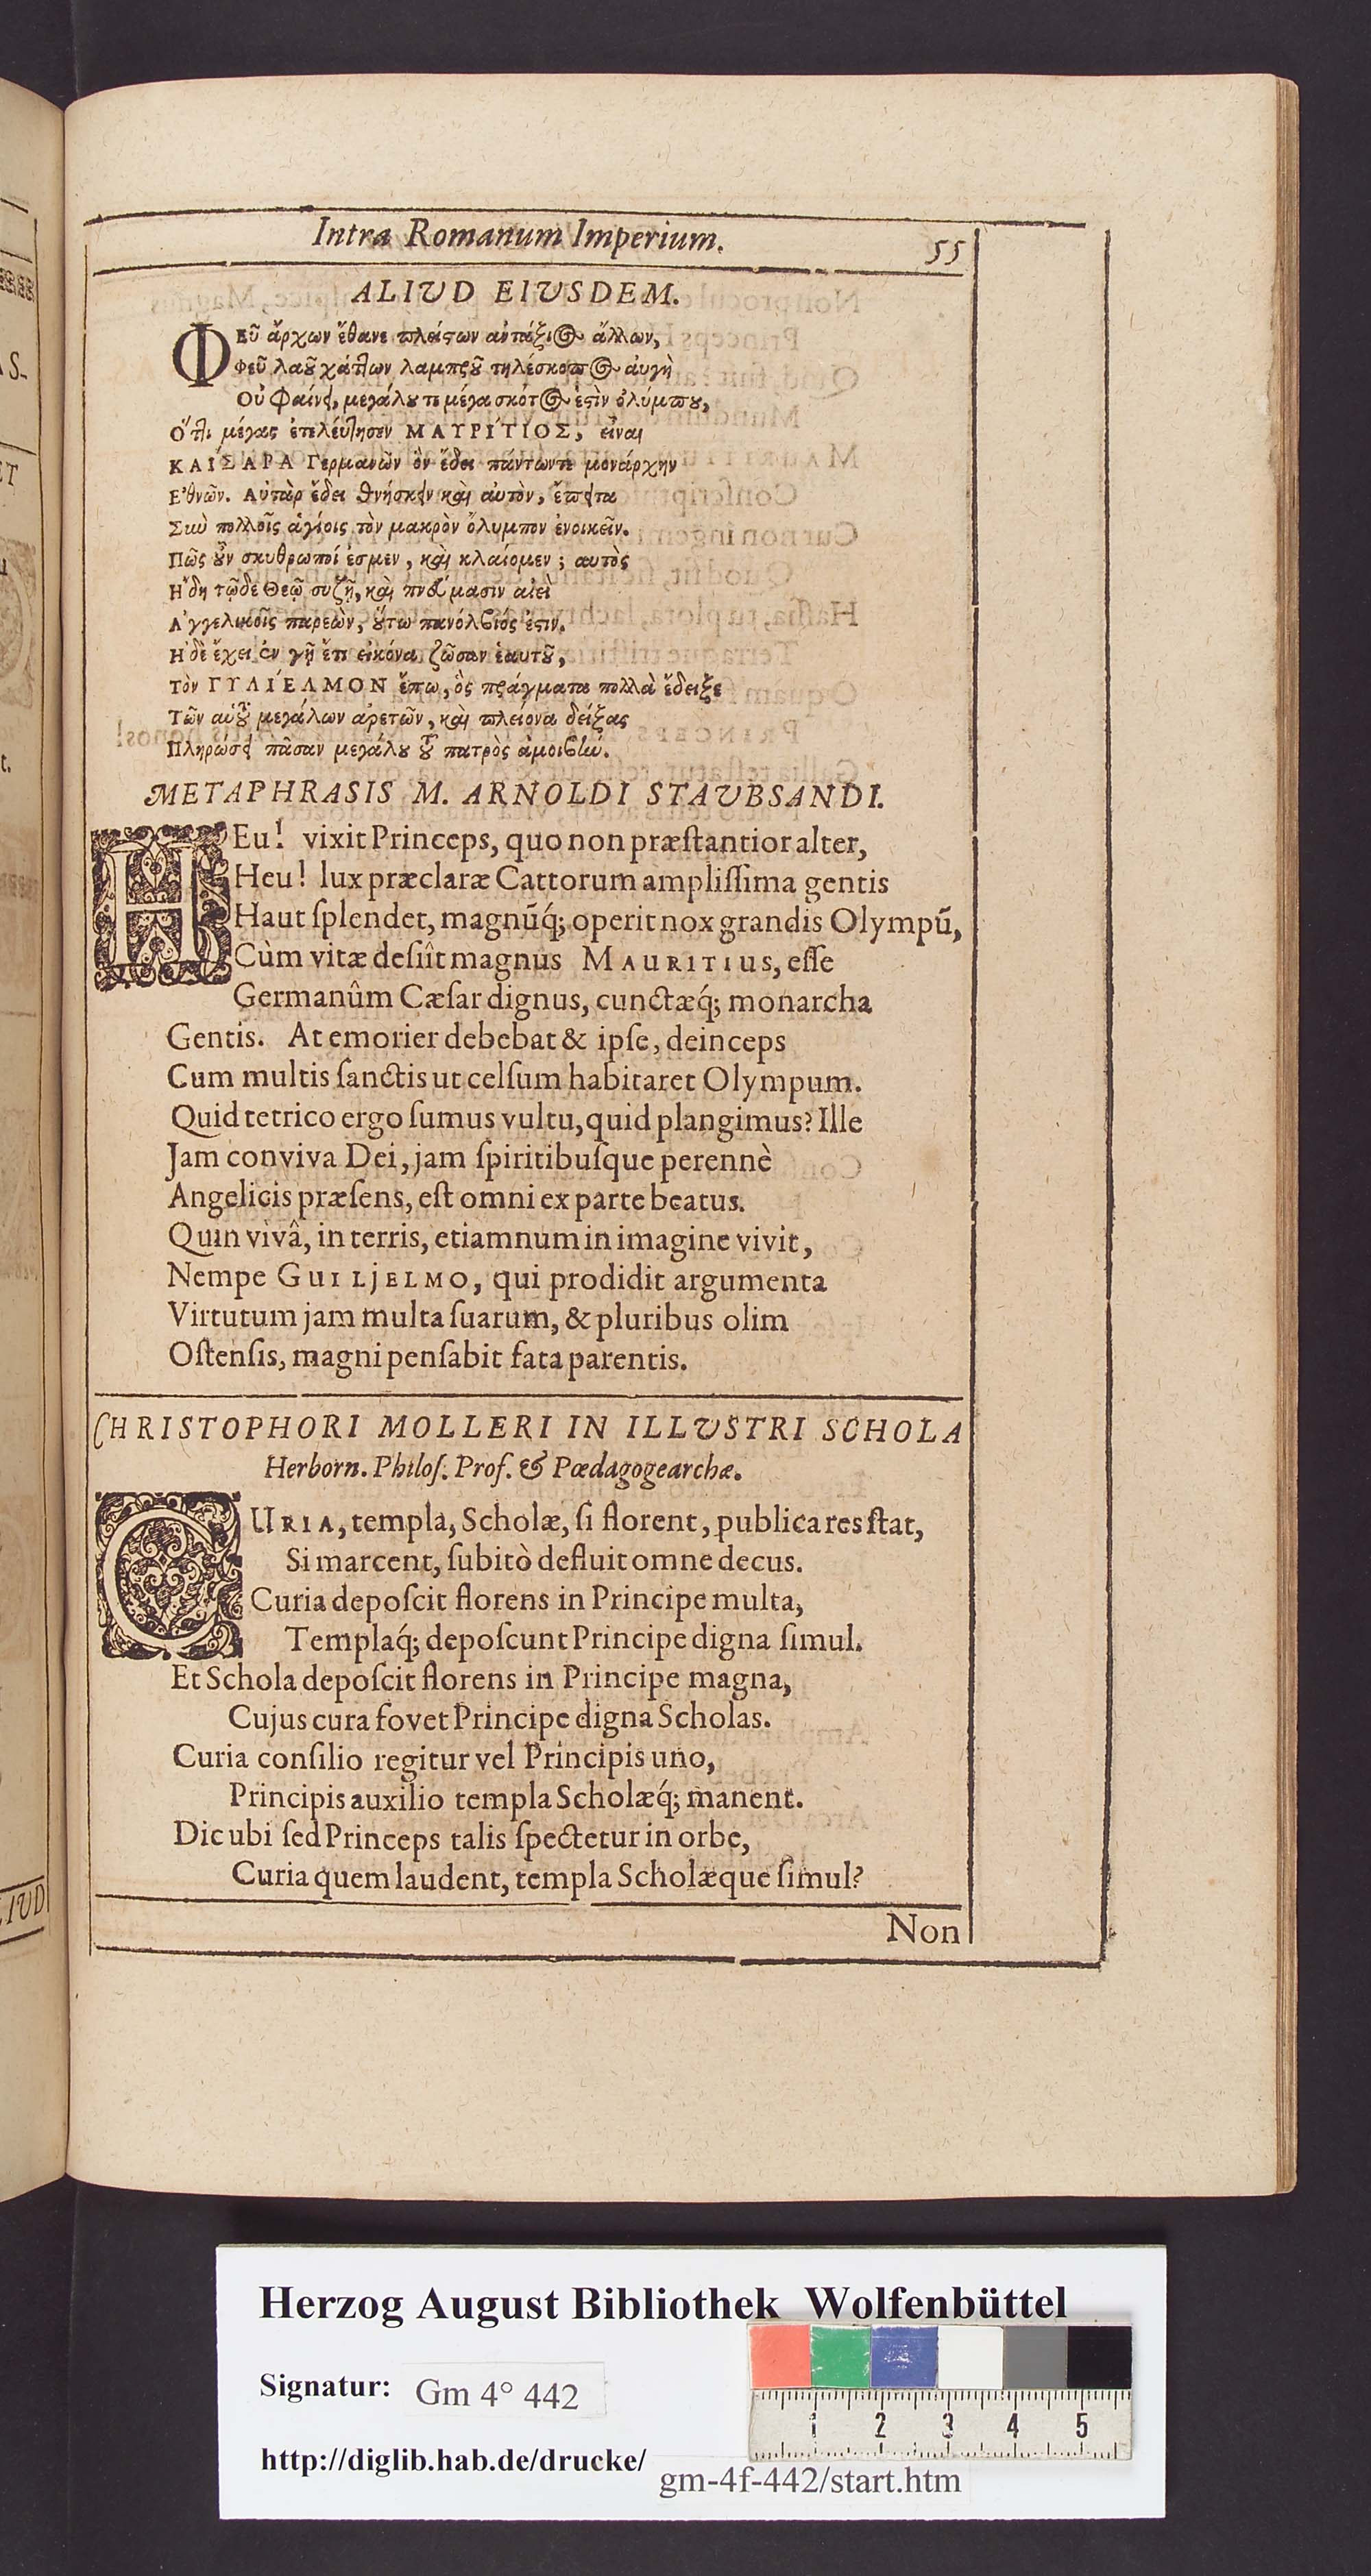 Intra Romanum Imperium. 55
ALIVD EIVSDEM.
ΦΕῦ ἄρχων ἔθανε πλείςων ἀντάξιος ἄλλων,
Φεῦ λαοῦ χάτλων λαμπροῦ τηλέσκοπος αὐγὴ
Οὐ φαίνει, μεγάλου τε μέγα σκότος ἐςὶν ὀλύμπου,
Ὅτι μέγας ἐτελεύτησεν ΜΑΥΡΙΤΙΟΣ, εἶναι
ΚΑΙΣΑΡΑ Γερμανῶν ὃν ἔδει πάντωντε μονάρχην
Ἐθνῶν. Αὐτὰρ ἔδει θνήσκειν καὶ αὐτὸν, ἔπειτα
Σὺν πολλοῖς ἁγίοις τὸν μακρὸν ὄλυμπον ἐνοικεῖν.
Πῶς οὖν σκυθρωποί ἐσμεν, καὶ κλαίομεν; αυτὸς
Ἤδη τῷδε Θεῷ συζῇ, καὶ πνεύμασιν αἰεὶ
Ἀγγελικοῖς παρεὼν, οὕτω πανόλβιός ἐςιν.
Ἠδὲ ἔχει ἐν γῇ ἔτι εἰκόνα ζῶσαν ἑαυτοῦ,
Τὸν ΓΥΛΙΕΛΜΟΝ ἔπω, ὃς πράγματα πολλὰ ἔδειξε
Τῶν αὑτοῦ μεγάλων ἀρετῶν, καὶ πλείονα δείξας
Πληρώσει πᾶσαν μεγάλου τοῦ πατρὸς ἀμοιβήν.
METAPHRASIS M. ARNOLDI STAVBSANDI.
HEu! vixit Princeps, quo non præſtantior alter,
Heu! lux præclaræ Cattorum ampliſſima gentis
Haut ſplendet, magnũq́; operit nox grandis Olympũ,
Cùm vitæ deſiît magnus MAURITIUS, eſſe
Germanûm Cæſar dignus, cunctæq́; monarcha
Gentis. At emorier debebat & ipſe, deinceps
Cum multis ſanctis ut celſum habitaret Olympum.
Quid tetrico ergo ſumus vultu, quid plangimus? Ille
Jam conviva Dei, jam ſpiritibuſque perennè
Angelicis præſens, eſt omni ex parte beatus.
Quin vivâ, in terris, etiamnum in imagine vivit,
Nempe GUILJELMO, qui prodidit argumenta
Virtutum jam multa ſuarum, & pluribus olim
Oſtenſis, magni penſabit fata parentis.
CHRISTOPHORI MOLLERI IN ILLVSTRI SCHOLA
Herborn. Philoſ. Prof. & Pœdagogearchæ.
CURIA, templa, Scholæ, ſi florent, publica res ſtat,
Si marcent, ſubitò defluit omne decus.
Curia depoſcit florens in Principe multa,
Templaq́; depoſcunt Principe digna ſimul.
Et Schola depoſcit florens in Principe magna,
Cujus cura fovet Principe digna Scholas.
Curia conſilio regitur vel Principis uno,
Principis auxilio templa Scholæq́; manent.
Dic ubi ſed Princeps talis ſpectetur in orbe,
Curia quem laudent, templa Scholæque ſimul?
Non
Herzog August Bibliothek Wolfenbüttel
Signatur: Gm 4° 442
1 2 3 4 5
http://diglib.hab.de/drucke/ gm-4f-442/start.htm